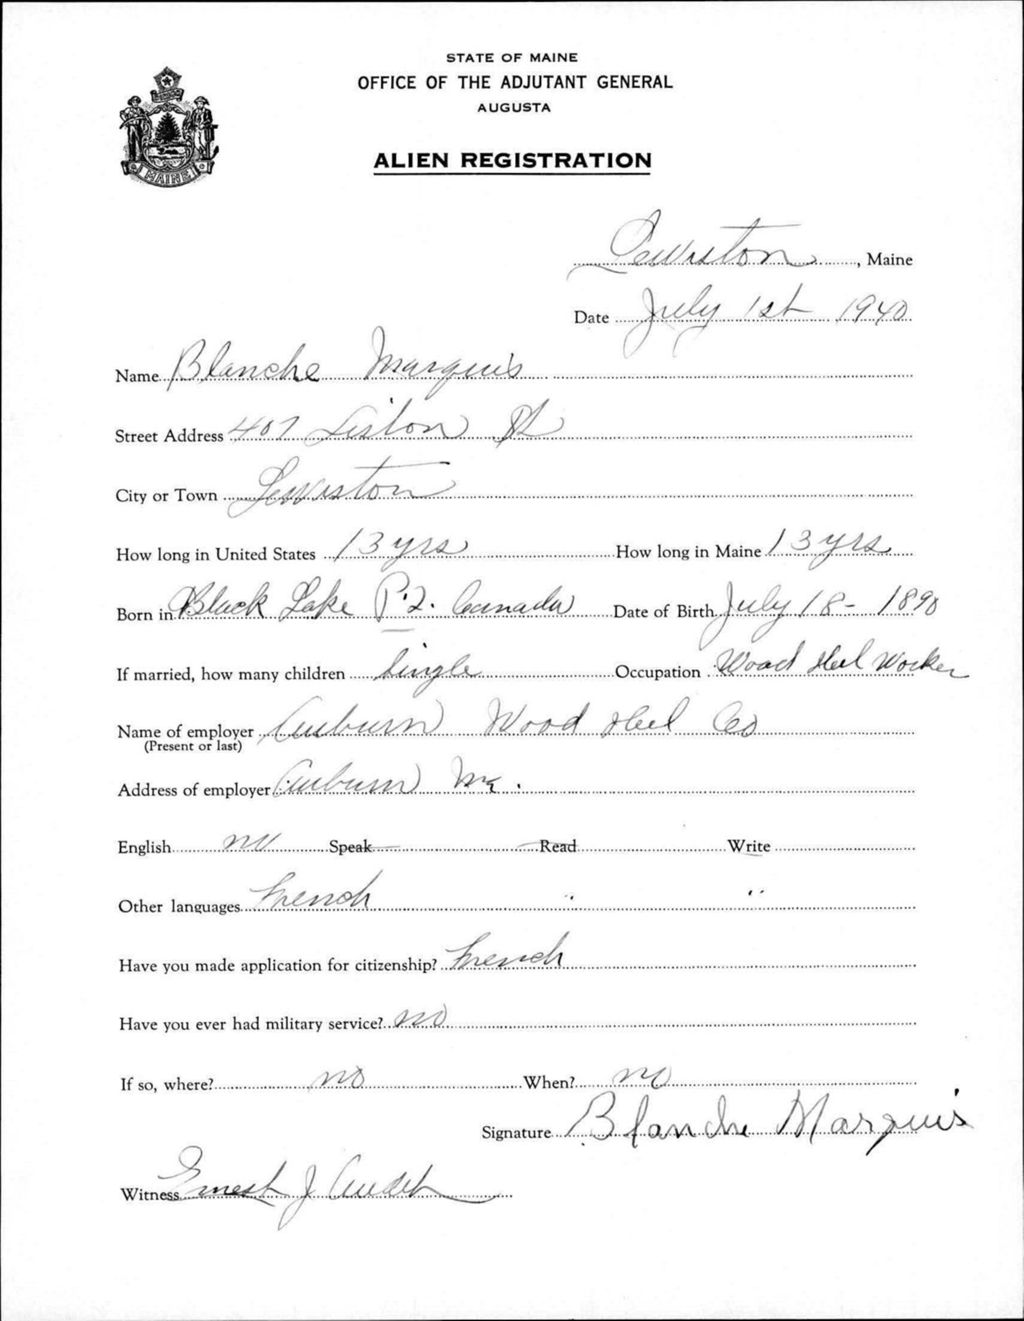 STATE OF MAINE
OFFICE OF THE ADJUTANT GENERAL
AUGUSTA
ALIEN REGISTRATION
MAINE
Lewiston, Maine
Date July 1st 1940
Name Blanche Marquis
Street Address 407 Lisbon St
City or Town Lewiston
How long in United States 13 yrs How long in Maine 13 yrs
Born in Black Lake P.Q. Canada Date of Birth July 18 - 1890
If married, how many children Single Occupation Wood Heel Worker
Name of employer Auburn Wood Heel Co
(Present or last)
Address of employer Auburn Me.
English no Speak Read Write
Other languages French " "
Have you made application for citizenship? French
Have you ever had military service? no
If so, where? no When? no
Signature Blanche Marquis
Witness Ernest J Audet